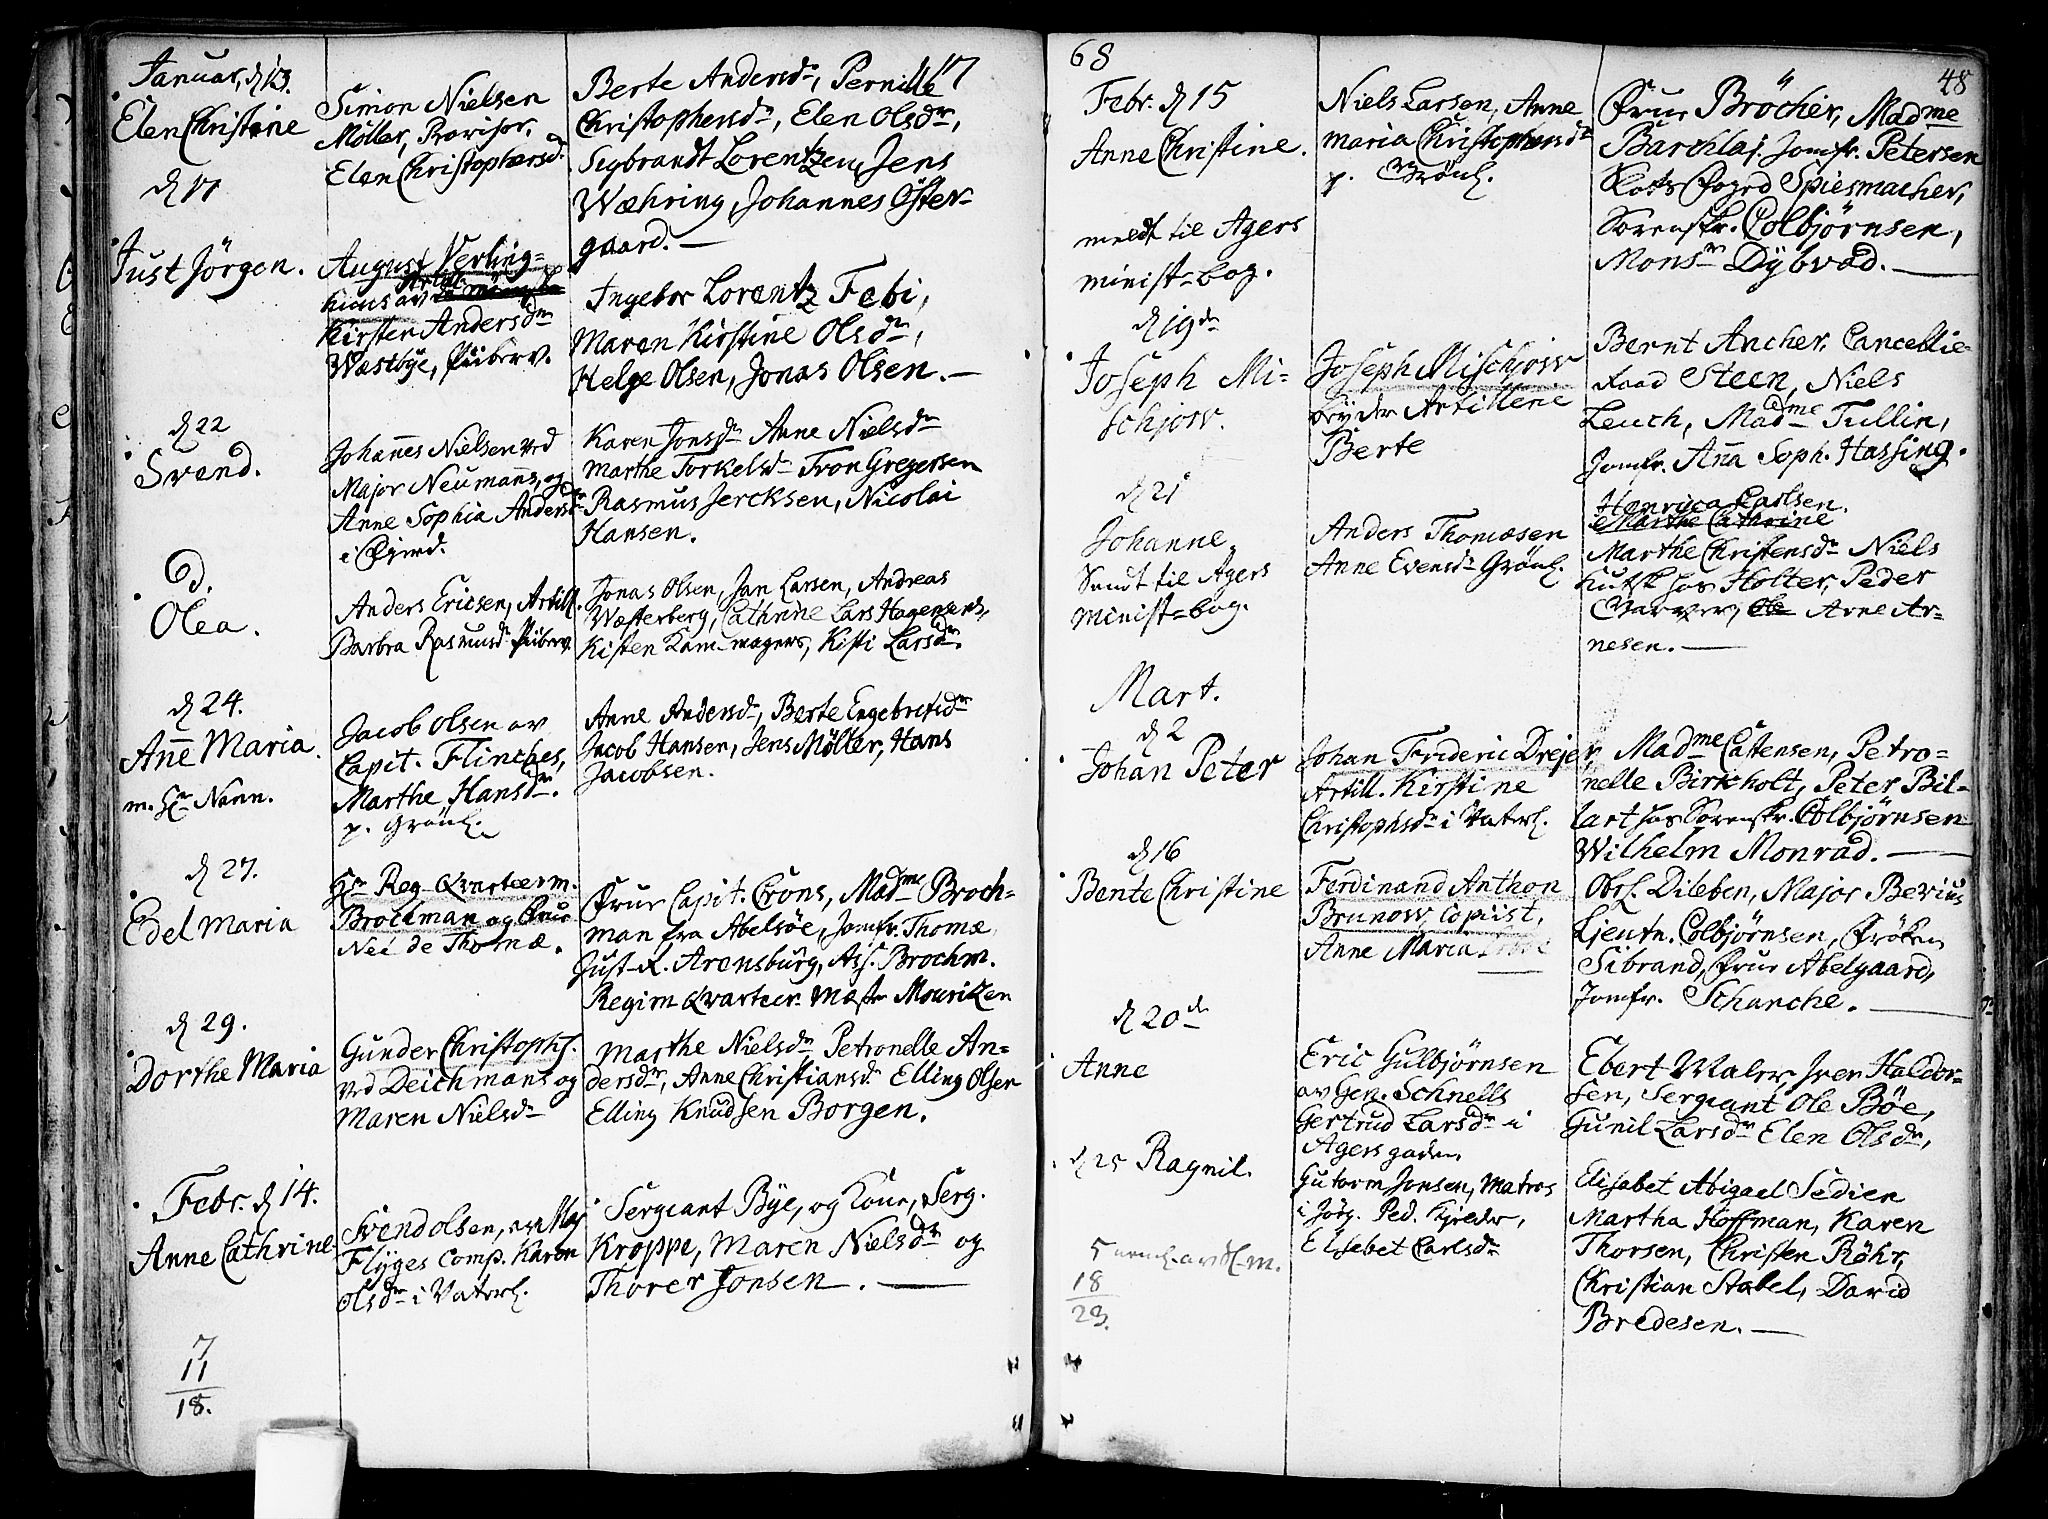 17
Januar, d 13.
Elen Christine
Simon Nielsen
Møller, Provisor,
Elen Christophersd.
Berte Andersdr, Pernille
Christophersdr, Elen Olsdr,
Sybrandt Lorentzen, Jens
Wæhring, Johannes Øster-
gaard. —
d 17
Just Jörgen.
August Verling-
Artill.
Kirsten Andersdr
Wæstbye, Piiberv.
Ingebor Lorentz Febi,
Maren Kirstine Olsdr,
Helge Olsen, Jonas Olsen. —
d 22
Svend.
Johannes Nielsen ved
Major Neumans, og
Anne Sophia Andersdr
Karen Jonsdr Anne Nielsdr
Marthe Torkelsdr Tron Gregersen
Rasmus Jercksen, Nicolai
Hansen.
d.
Olea.
Anders Ericsen, Artill.
Barbra Rasmusdr Piiberv.
Jonas Olsen, Jan Larsen, Andreas
Wæsterberg, Cathrine Lars Hagensens,
Kisten Kam-magers, Kisti Larsdr.
d 24.
Ane Maria
m. Hr Nann.
Jacob Olsen av
Capit. Flinches,
Marthe Hansdr.
p. Grönl.
Anne Andersdr, Berte Engebretsdr
Jacob Hansen, Jens Møller, Hans
Jacobsen.
d 27.
Edel Maria
Hr Reg-Qvarteerm.
Brochman og Frue
Nei de Thomæ.
Frue Capit. Crons, Madme Broch-
man fra Abelsöe, Jomfr. Thomæ
Gust-d. Arensburg, Ass. Brochm.
Regim Qvarteer-Mæstr Mouritzen
d 29.
Dorthe Maria
Gunder Christophs.
ved Deichmans og
Maren Nielsdr
Marthe Nielsdr Petronelle An-
dersdr, Anne Christiansdr Elling Olsen
Elling Knudsen Borgen.
Febr. d 14.
Anne Cathrine
Svend Olsen, av Maj
Flyges Comp. Karen
Olsdr i Vaterl.
Sergeant Bye, og Kone, Serg.
Kroppe, Maren Nielsdr og
Thorer Jonsen. —
7
11
18.
68
48
Febr. d 15
Anne Christine.
meldt til Agers
minist-bog.
Niels Larsen, Anne
Maria Christophersdr
p. Grönl.
Frue Bröcher, Madme
Barchlaj. Jomfr. Petersen
Slots Foged Spiesmacher,
Sorenskr. Colbjørnsen,
Monsr Dybvad. —
d 19de
Joseph Mi-
schjow.
Joseph Mischjow
Artillerie
Berte
Bernt Ancher, Cancellie-
Raad Steen, Niels
Leuch, Madme Tullin,
Jomfr. Anna Soph. Hassing.
d 21
Johanne
Sendt til Agers
minist-bog.
Anders Thomæsen
Anne Evensdr Grönl.
Henrica Carlsen.
Marthe Cathrine
Marthe Christensdr Niels
Kudsk hos Holter, Peder
Garver, Ole Arne Ar-
nesen. —
Mart.
d 2
Johan Peter
Johan Frideric Drejer,
Artill. Kirstine
Christophsdr i Vaterl.
Madme Castensen, Petro-
nelle Birkholt, Peter Bil-
lart hos Sorenskr. Colbjørnsen
Wilhelm Monrad. —
d 16
Bente Christine
Ferdinand Anthon
Brunow Copiist,
Anne Maria
Obrl. Dileben, Major Bevius
Ljeutn. Colbjørnsen, Frøken
Sibrand, Frue Abelgaard,
Jomfr. Schanche. —
d 20de
Anne
Eric Gulbjörnsen
av Gen. Schnells
Gertrud Larsdr i
Agers gaden.
Ebert Maler, Iver Haldor-
sen, Sergeant Ole Böe,
Gunil Larsdr Elen Olsdr,
d 25 Ragnil.
Gutorm Jonsen, Matros
i Jörg. Ped. Kjreder,
Elisebet Carlsdr
Elisabet Abigael Sedien
Martha Hoffman, Karen
Thorsen, Christen Röhr,
Christian Stabel, David
Bredesen. —
5
18
23.